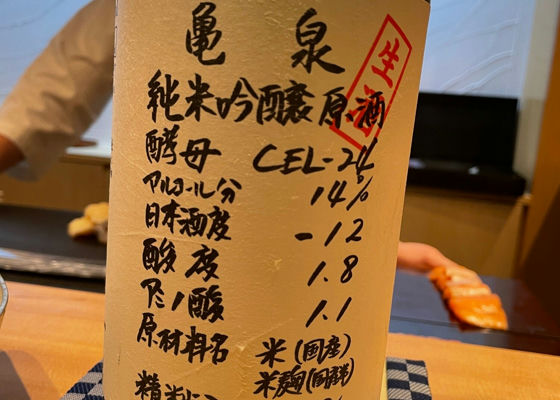 亀 泉
生酒
純米吟醸原酒
酵母 CEL-24
アルコール分 14%
日本酒度 -12
酸度 1.8
アミノ酸 1.1
原材料名 米(国産)
米麹(国産米)